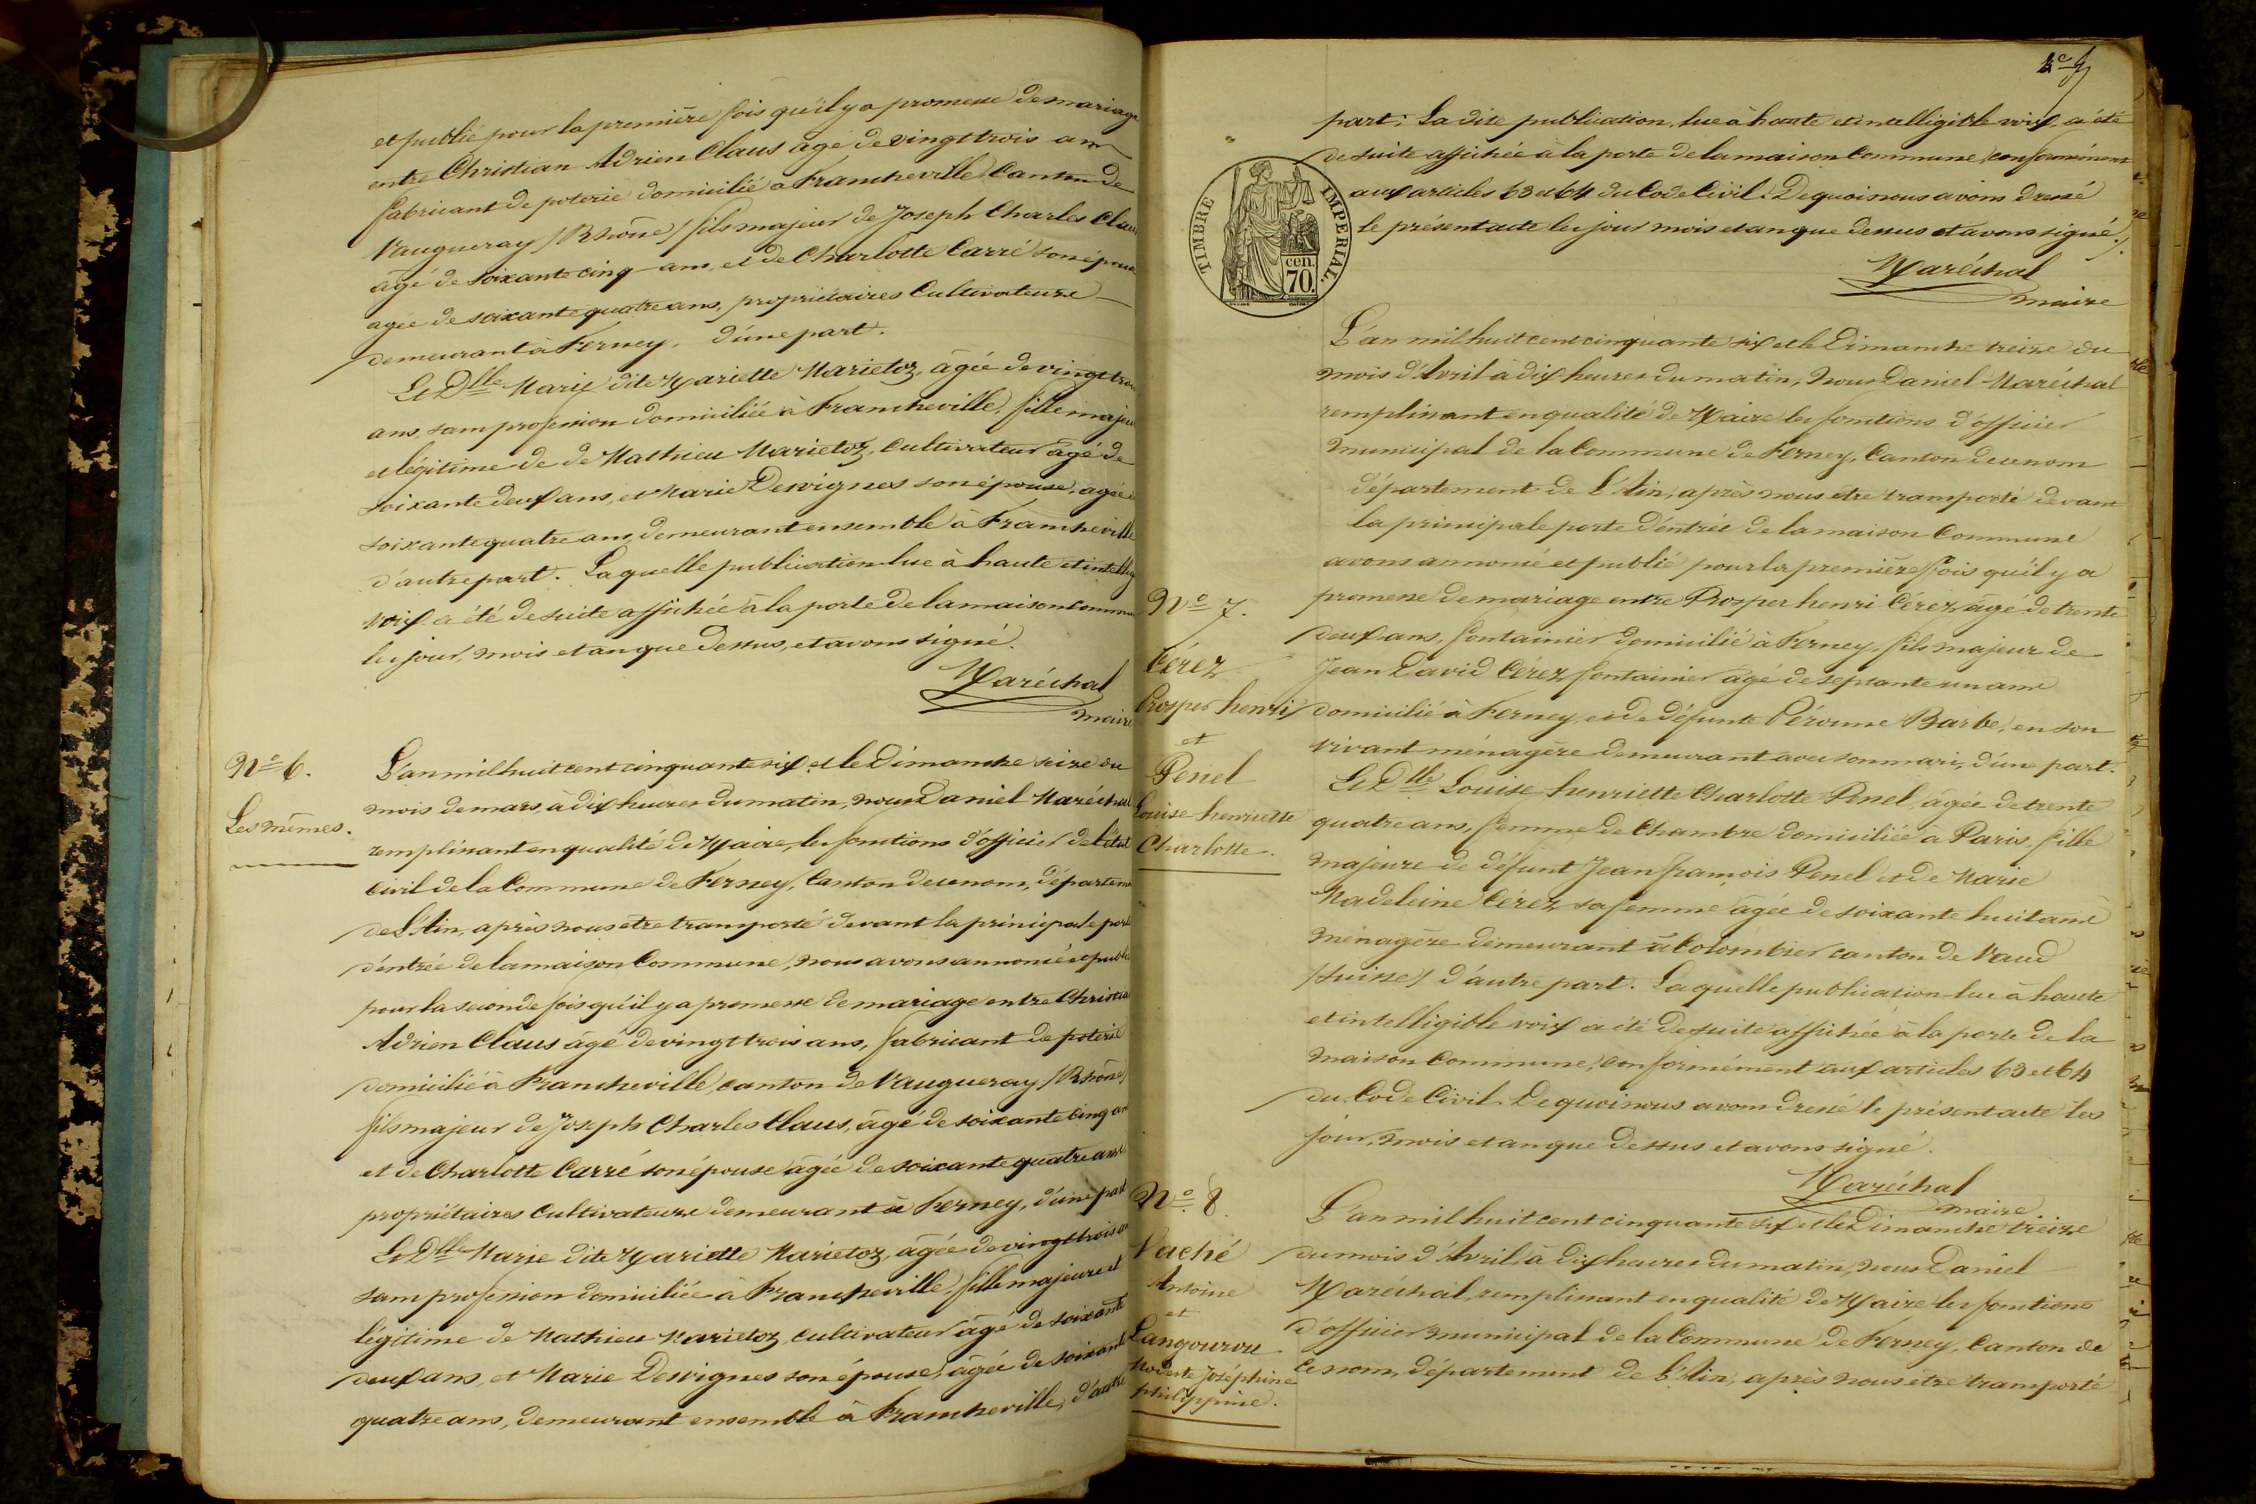 et publié pour la première fois qu'il y a promesse de mariage
entre Christian Adrien Claus âgé de vingt trois ans
fabricant de poterie domicilié à Francheville Canton de
Vaugneray (Rhône) fils majeur de Joseph Charles Claus
âgé de soixante cinq ans, et de Charlotte Carré son épouse
agée de soixante quatre ans, propriétaires Cultivateurs
demeurant à Ferney, d'une part.
Et Dlle Marie dite Mariette Marietoz, âgée de vingt trois
ans, sans profession domiciliée à Francheville, fille majeure
et légitime de de Mathieu Marietoz, Cultivateur âgé de
soixante deux ans, et Marie Desvignes son épouse, agée de
soixante quatre ans, demeurant ensemble à Francheville
d'autre part. Laquelle publication lue à haute et intellig
voix a été de suite affichée à la porte de la maison commune
les jour, mois et an que dessus, et avons signé.
Maréchal
maire
N° 6.
Les mêmes.
L'an mil huit cent cinquante six et le Dimanche seize du
mois de mars, à dix heures du matin, nous Daniel Maréchal
remplissant en qualité de Maire, les fonctions d'officier de l'état
Civil de la Commune de Ferney, Canton de ce nom, département
de l'Ain, après nous être transporté devant la principale porte
d'entrée de la maison Commune, nous avons annoncé et publié
pour la seconde fois qu'il y a promesse de mariage entre Christian
Adrien Claus âgé de vingt trois ans, fabricant de poterie
domicilié à Francheville, canton de Vaugneray (Rhône)
fils majeur de Joseph Charles Claus, âgé de soixante cinq ans
et de Charlotte Carré son épouse âgée de soixante quatre ans
propriétaires Cultivateurs demeurant à Ferney, d'une part
Et Dlle Marie dite Mariette Marietoz, âgée de vingt trois ans
sans profession domiciliée à Francheville, fille majeure et
légitime de Mathieu Marietoz, cultivateur âgé de soixante
deux ans, et Marie Desvignes son épouse, âgée de soixante
quatre ans, demeurant ensemble à Francheville, d'autre
part; La dite publication, lue à haute et intelligible voix, a été
de suite affichée à la porte de la maison Commune, conformément
aux articles 63 et 64 du Code Civil. De quoi nous avons dressé
le présent acte les jour mois et an que dessus et avons signé.
TIMBRE IMPERIAL.
cen.
70.
Maréchal
maire
N° 7.
Cérez
Prosper henri
et
Penel
Louise henriette
Charlotte.
L'an mil huit cent cinquante six et le Dimanche treize du
mois d'Avril à dix heures du matin, Nous Daniel Maréchal
remplissant en qualité de Maire les fonctions d'officier
municipal de la Commune de Ferney, Canton de ce nom
département de l'Ain, après nous être transporté devant
la principale porte d'entrée de la maison Commune
avons annoncé et publié pour la première fois qu'il y a
promesse de mariage entre Prosper henri Cérez âgé de trente
deux ans, fontainier domicilié à Ferney, fils majeur de
Jean David Cérez fontainier âgé de septante un ans
domicilié à Ferney et de défunte Péronne Barbe, en son
vivant ménagère demeurant avec son mari, d'une part.
Et Dlle Louise henriette Charlotte Penel, âgée de trente
quatre ans, femme de Chambre domiciliée à Paris, fille
majeure de défunt Jean françois Penel et de Marie
Madeleine Cérez sa femme âgée de soixante huit ans
ménagère demeurant à Colombier canton de Vaud
(Suisse) d'autre part. Laquelle publication lue à haute
et intelligible voix a été de suite affichée à la porte de la
maison Commune, conformément aux articles 63 et 64
du Code Civil. De quoi nous avons dressé le présent acte les
jour, mois et an que dessus et avons signé.
Maréchal
maire
N° 8.
Vaché
Antoine
et
Langourou
Modeste Joséphine
philippine.
L'an mil huit cent cinquante six et le Dimanche treize
du mois d'Avril, à dix heures du matin, nous Daniel
Maréchal, remplissant en qualité de Maire les fonctions
d'officier municipal de la Commune de Ferney, Canton de
ce nom, département de l'Ain, après nous être transporté